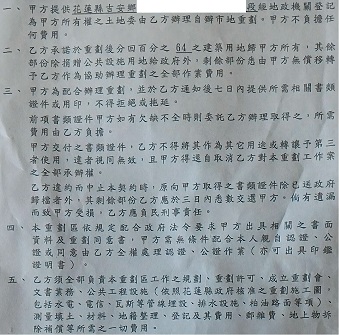 一、甲方提供花蓮縣吉安鄉 段經地政機關登記
為甲方所有權之土地委由乙方辦理自辦市地重劃。甲方不負擔任
何費用。
二、乙方承諾於重劃後分回百分之 64 之建築用地歸甲方所有，其餘
部份除捐贈公共設施用地給政府外，剩餘部份悉由甲方無償移轉
予乙方作為協助辦理重劃之全部作業費用。
三、甲方為配合辦理重劃，並於乙方通知後七日內提供所需相關書類
證件或用印，不得拒絕或拖延。
前項書類證件甲方如有欠缺不全時則委託乙方辦理取得之，所需
費用由乙方負擔。
甲方交付之書類證件，乙方不得將其作為其它用途或轉讓予第三
者使用，違者視同無效，且甲方得逕自取消乙方對本重劃工作業
之全部承辦權。
乙方違約而中止本契約時，原向甲方取得之書類證件除已送政府
歸檔者外，其剩餘部份乙方應於三日內悉數交還甲方。倘有遺漏
而致甲方受損，乙方應負民刑事責任。
四、本重劃區依規定配合政府法令要求甲方出具相關之書面
資料及重劃同意書，甲方需無條件配合本人親自認證、公
證或同意由乙方全權處理認證、公證作業（亦可出具印鑑
證明書）。
五、乙方須全部負責本重劃區工作之規劃、重劃許可、成立重劃會、
文書業務、公共工程設施（依照花蓮縣政府核准之重劃施工圖。
包括水電、電信、瓦斯等管線埋設、排水設施、柏油路面等項）、
測量填土、材料、地籍整理、登記及其費用、郵雜費、地上物拆
除補償等所需之一切費用。